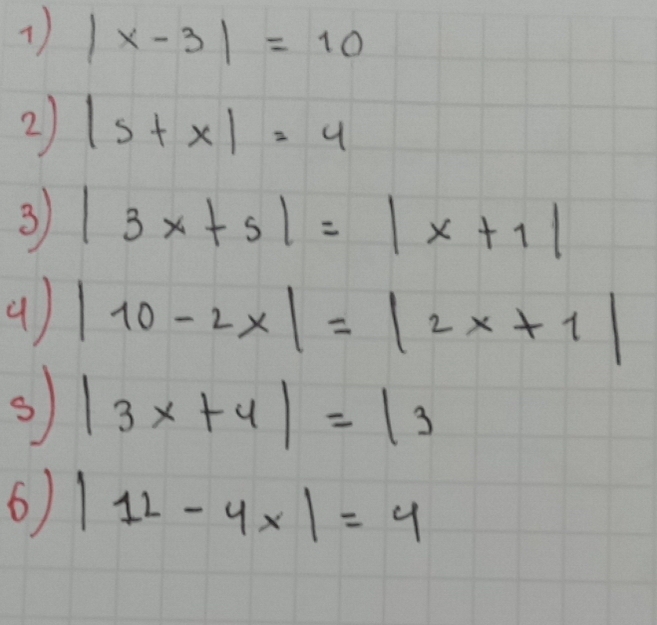 1) |x - 3| = 10
2) |5 + x| = 4
3) |3x + 5| = |x + 1|
4) |10 - 2x| = |2x + 1|
5) |3x + 4| = |3
6) |12 - 4x| = 4